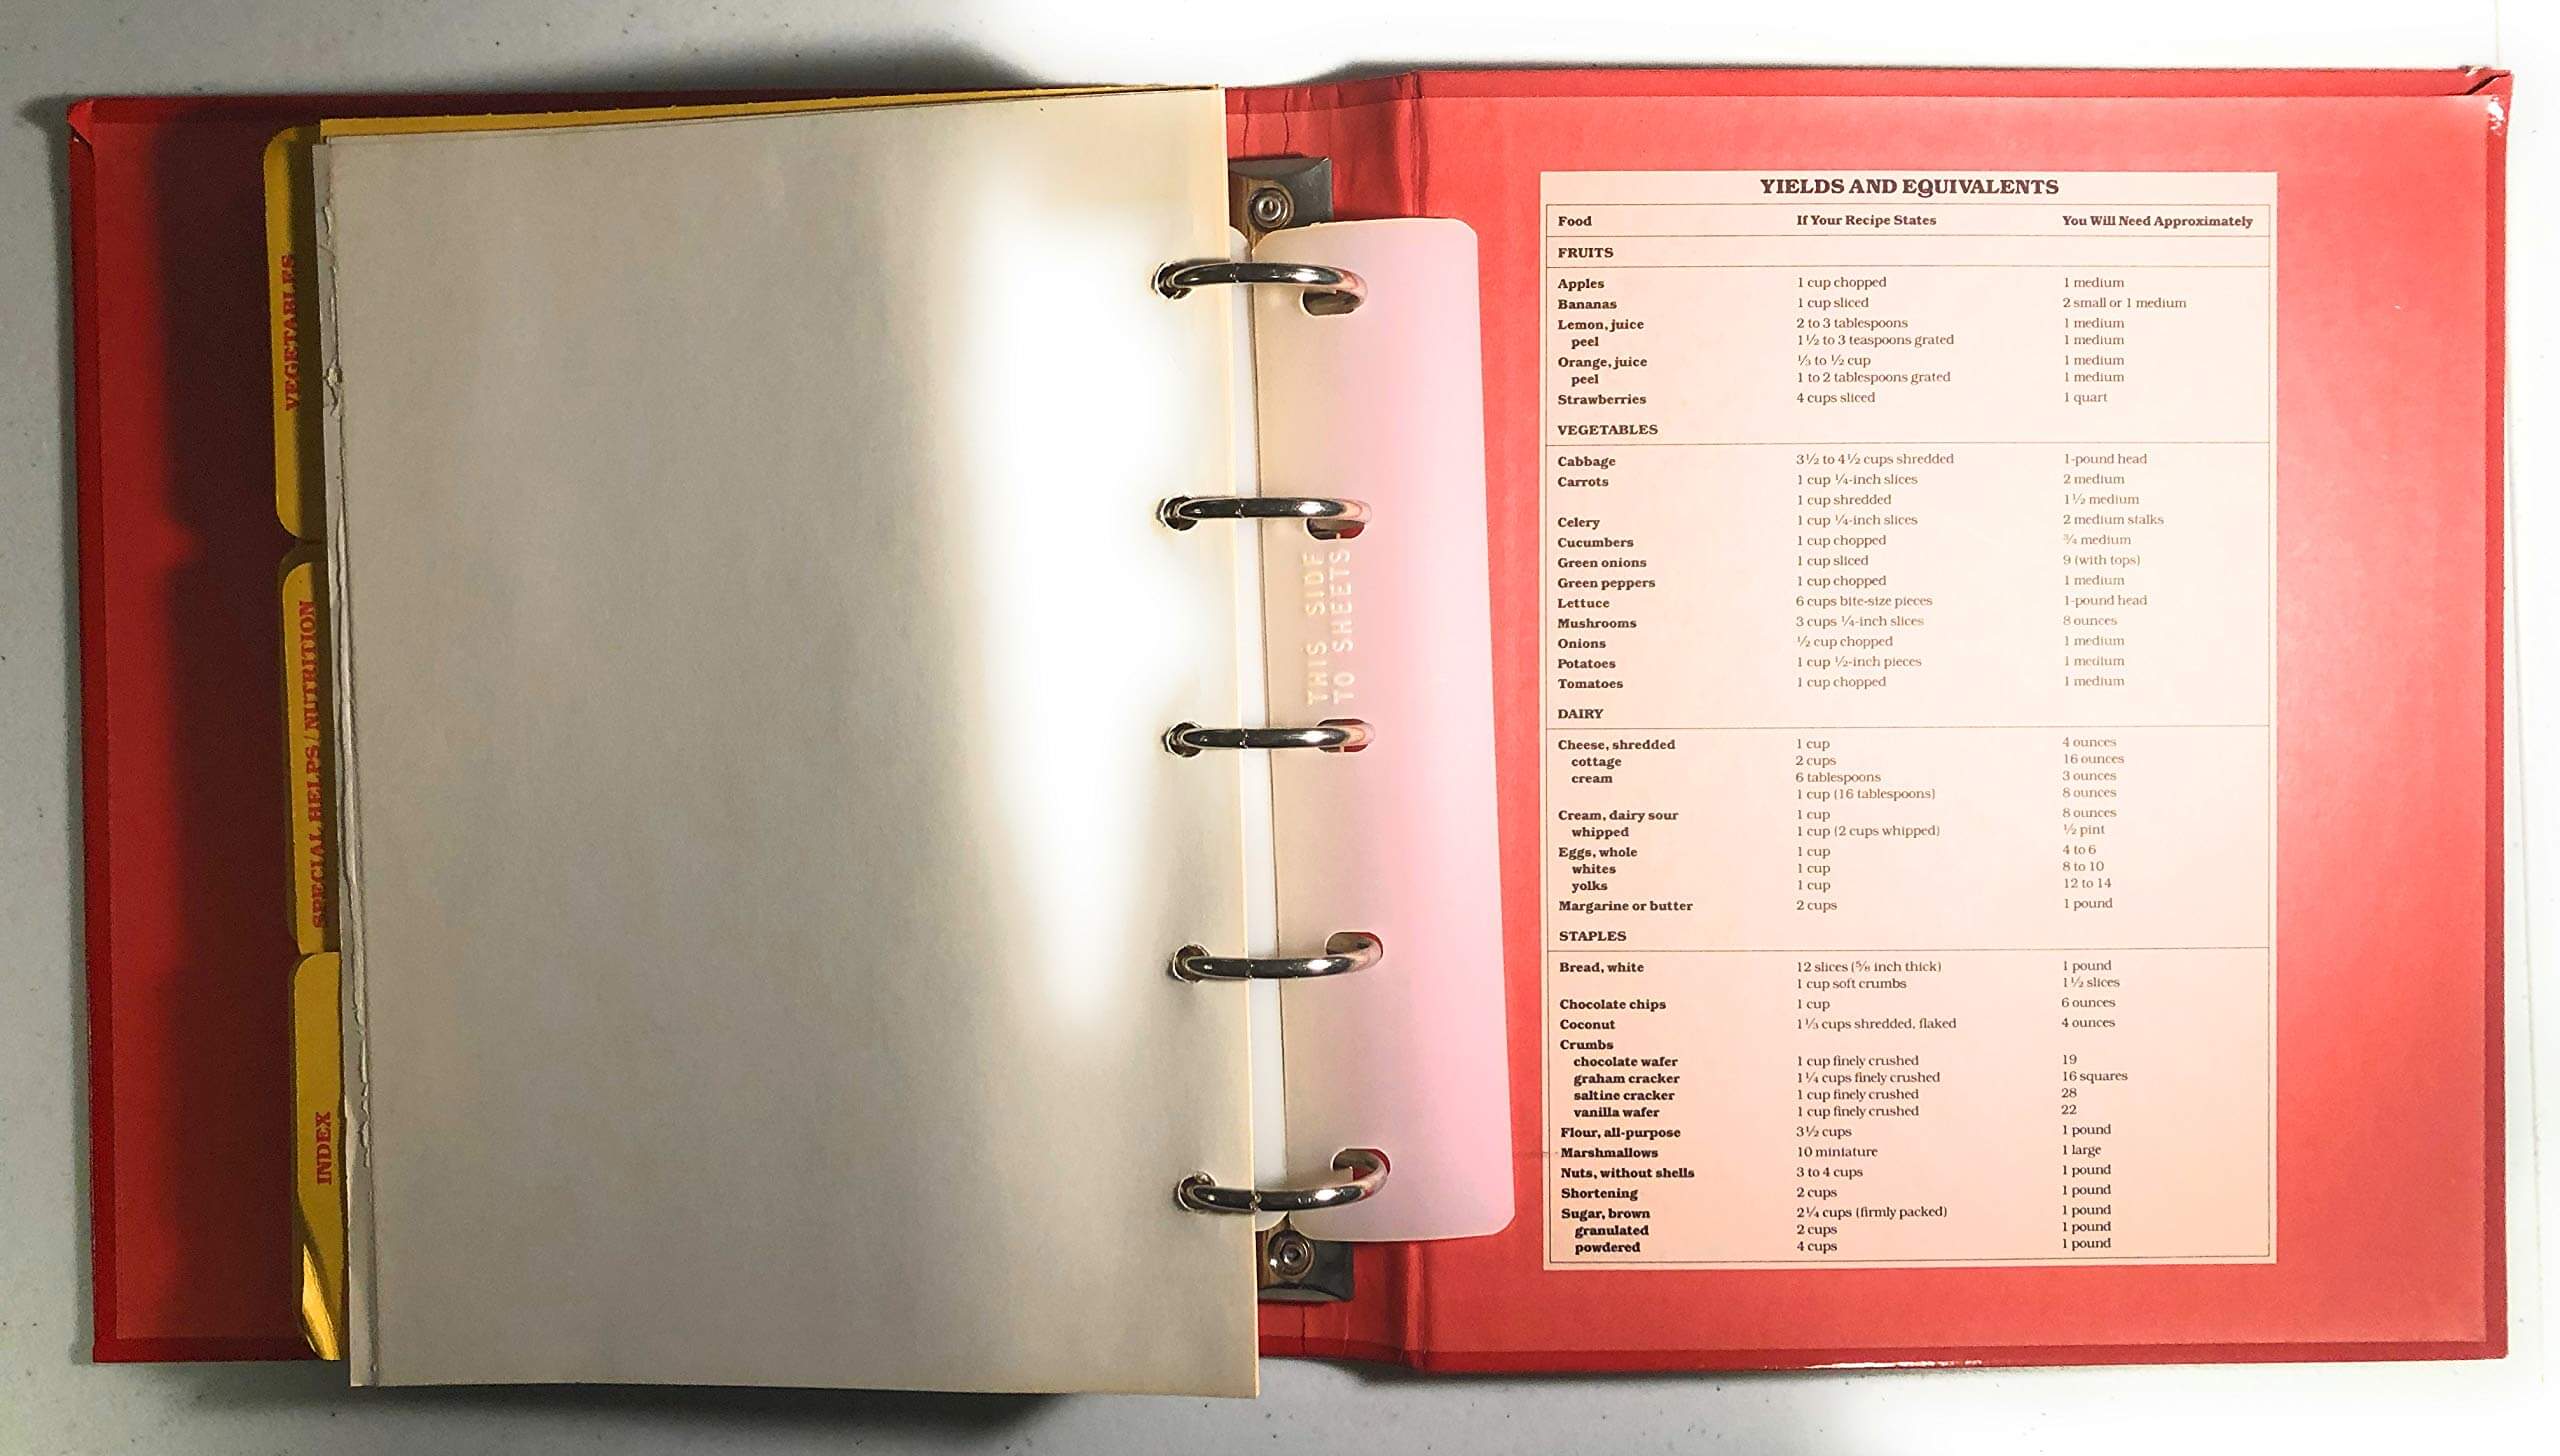 VEGETABLES
SPECIAL HELPS/NUTRITION
INDEX
THIS SIDE
TO SHEETS
YIELDS AND EQUIVALENTS
Food If Your Recipe States You Will Need Approximately
FRUITS
Apples 1 cup chopped 1 medium
Bananas 1 cup sliced 2 small or 1 medium
Lemon, juice 2 to 3 tablespoons 1 medium
peel 1½ to 3 teaspoons grated 1 medium
Orange, juice ⅓ to ½ cup 1 medium
peel 1 to 2 tablespoons grated 1 medium
Strawberries 4 cups sliced 1 quart
VEGETABLES
Cabbage 3½ to 4½ cups shredded 1-pound head
Carrots 1 cup ¼-inch slices 2 medium
1 cup shredded 1½ medium
Celery 1 cup ¼-inch slices 2 medium stalks
Cucumbers 1 cup chopped ¾ medium
Green onions 1 cup sliced 9 (with tops)
Green peppers 1 cup chopped 1 medium
Lettuce 6 cups bite-size pieces 1-pound head
Mushrooms 3 cups ¼-inch slices 8 ounces
Onions ½ cup chopped 1 medium
Potatoes 1 cup ½-inch pieces 1 medium
Tomatoes 1 cup chopped 1 medium
DAIRY
Cheese, shredded 1 cup 4 ounces
cottage 2 cups 16 ounces
cream 6 tablespoons 3 ounces
1 cup (16 tablespoons) 8 ounces
Cream, dairy sour 1 cup 8 ounces
whipped 1 cup (2 cups whipped) ½ pint
Eggs, whole 1 cup 4 to 6
whites 1 cup 8 to 10
yolks 1 cup 12 to 14
Margarine or butter 2 cups 1 pound
STAPLES
Bread, white 12 slices (⅝ inch thick) 1 pound
1 cup soft crumbs 1½ slices
Chocolate chips 1 cup 6 ounces
Coconut 1⅓ cups shredded, flaked 4 ounces
Crumbs
chocolate wafer 1 cup finely crushed 19
graham cracker 1¼ cups finely crushed 16 squares
saltine cracker 1 cup finely crushed 28
vanilla wafer 1 cup finely crushed 22
Flour, all-purpose 3½ cups 1 pound
Marshmallows 10 miniature 1 large
Nuts, without shells 3 to 4 cups 1 pound
Shortening 2 cups 1 pound
Sugar, brown 2¼ cups (firmly packed) 1 pound
granulated 2 cups 1 pound
powdered 4 cups 1 pound